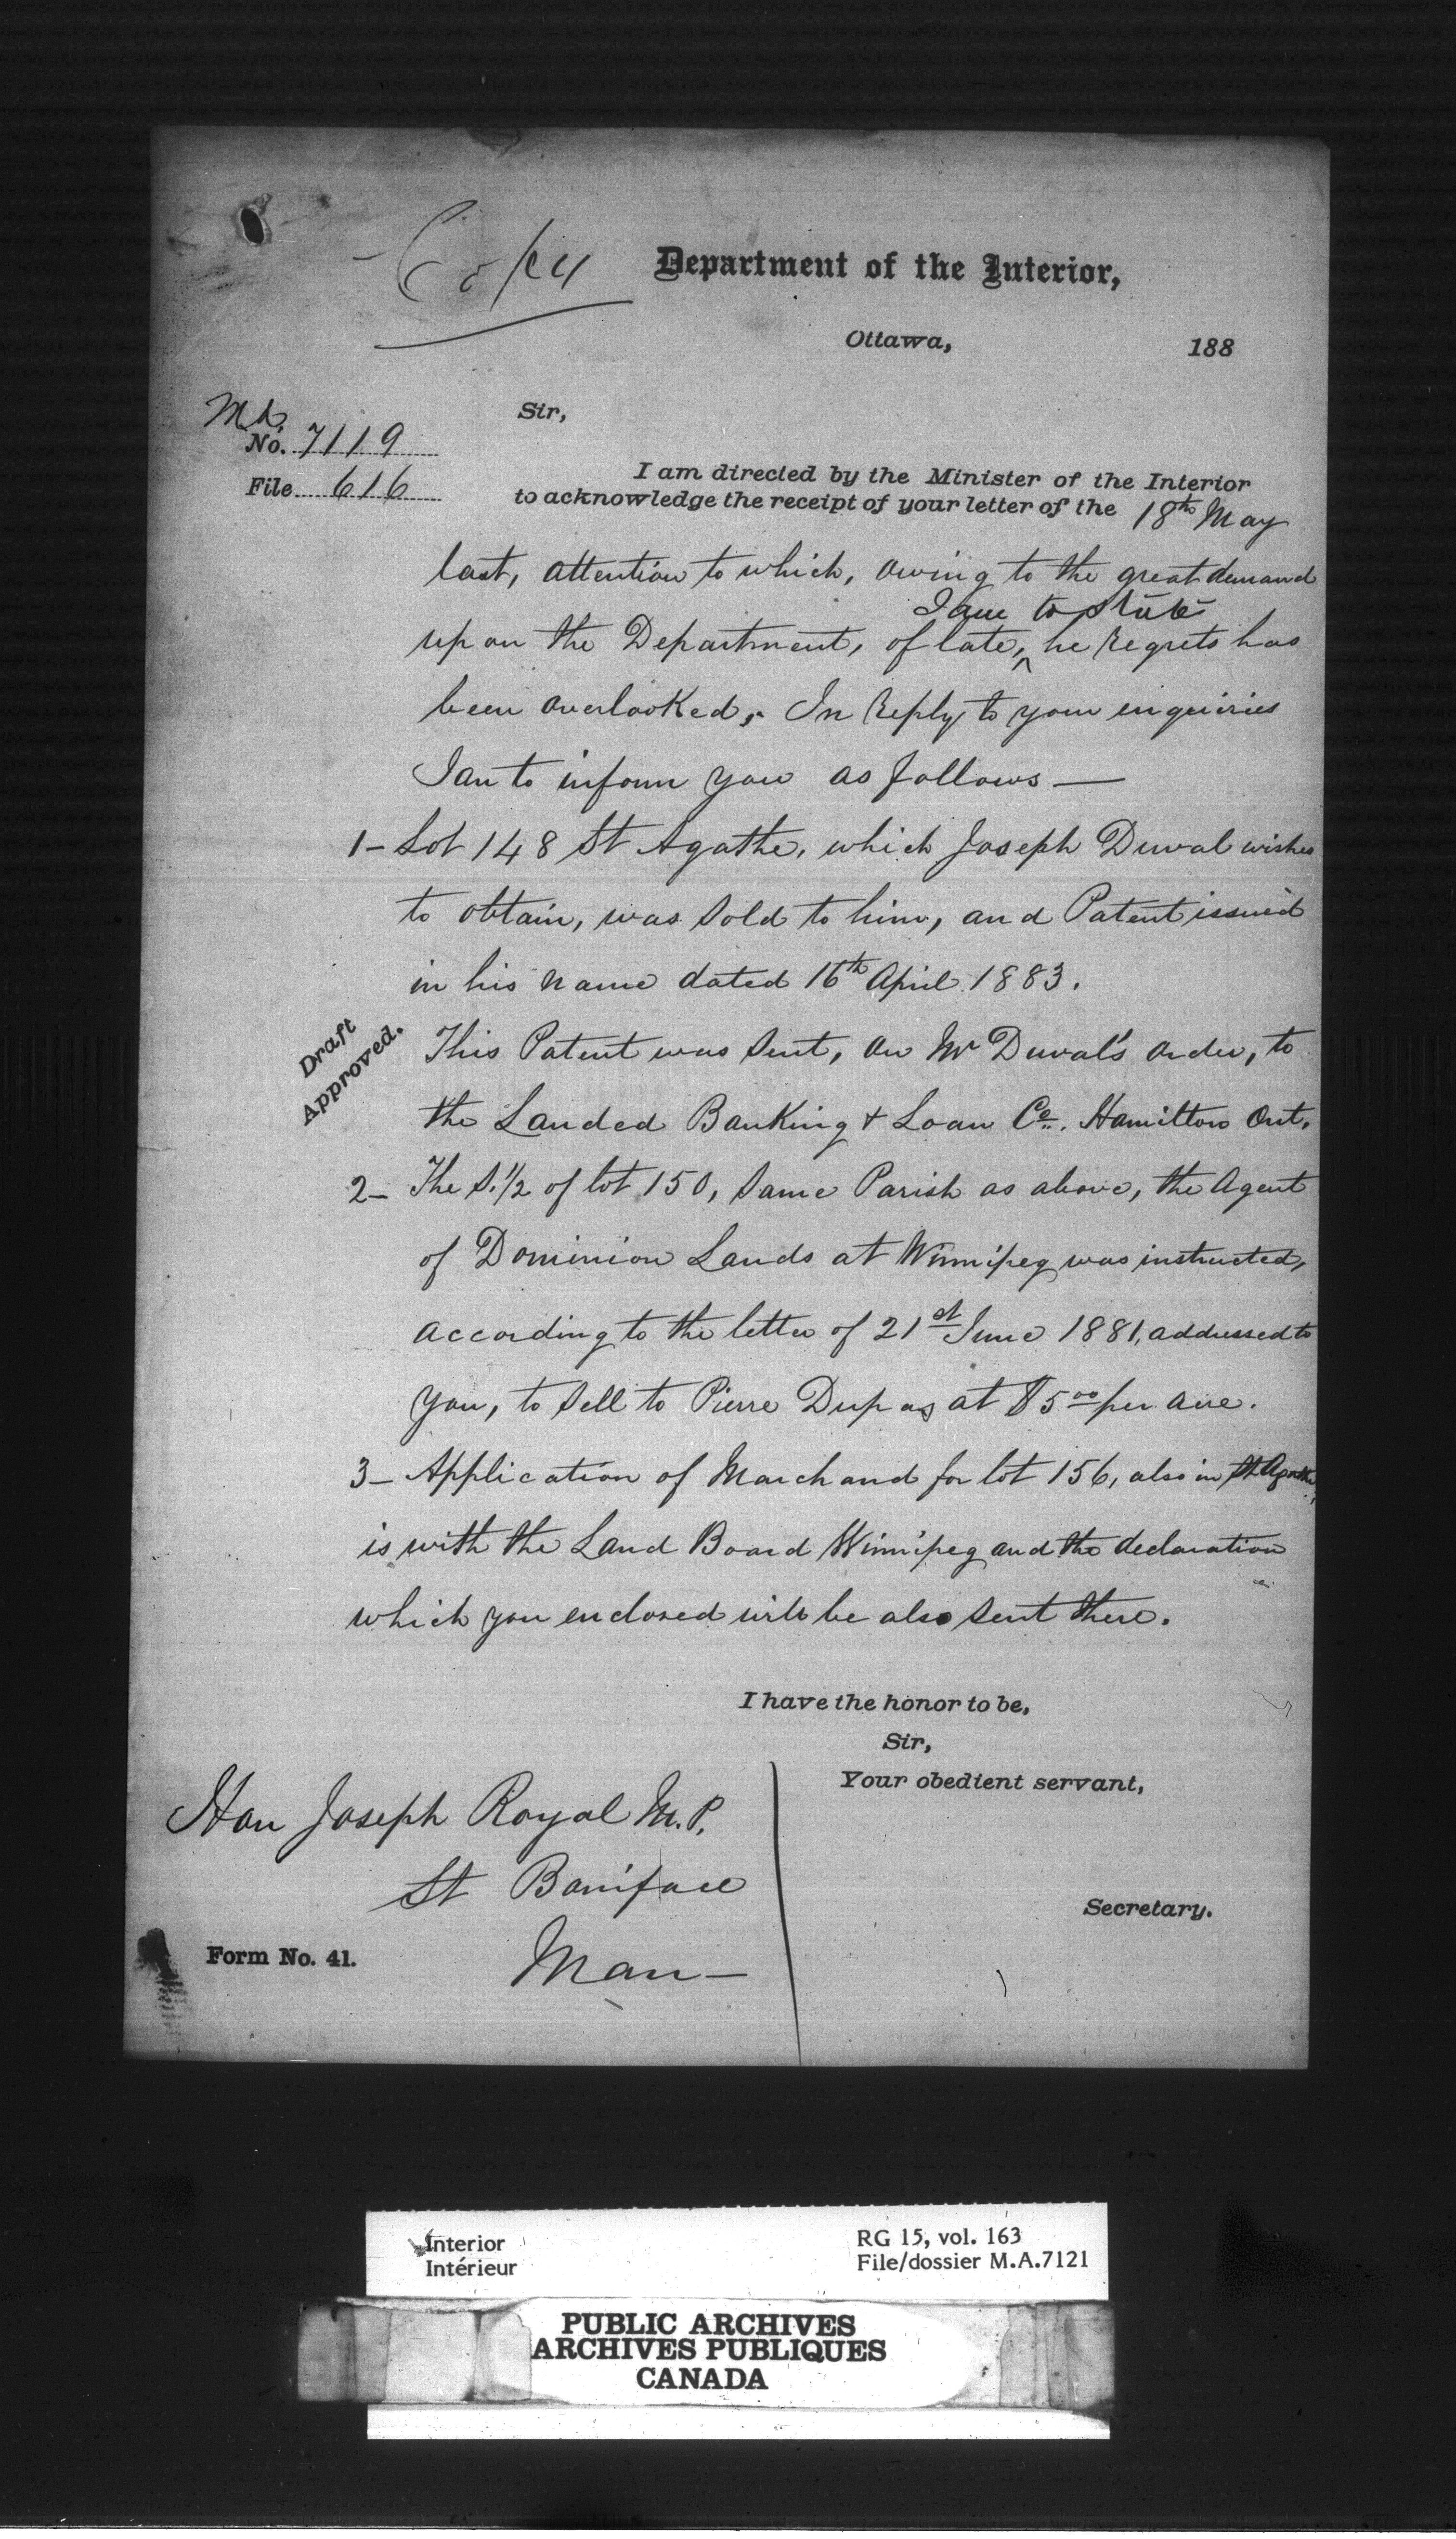 Copy
Department of the Interior,
Ottawa, 188
M.A.
No. 7119
File 616
Sir,
I am directed by the Minister of the Interior
to acknowledge the receipt of your letter of the 18th May
last, attention to which, owing to the great demand
I am to state
upon the Department, of late, ^ he regrets has
been overlooked, - In reply to your inquiries
I am to inform you as follows —
1 - Lot 148 St Agathe, which Joseph Duval wishes
to obtain, was sold to him, and Patent issued
in his name dated 16th April 1883.
Draft
Approved.
This Patent was sent, on Mr Duval's order, to
the Landed Banking & Loan Co. Hamilton Ont.
2 - The S. 1/2 of lot 150, same Parish as above, the Agent
of Dominion Lands at Winnipeg was instructed,
according to the letter of 21st June 1881, addressed to
you, to sell to Pierre Dupas at $5 00 per acre.
3 - Application of Marchand for lot 156, also in St Agathe,
is with the Land Board Winnipeg and the declaration
which you enclosed will be also sent there.
I have the honor to be,
Sir,
Your obedient servant,
Hon Joseph Royal M.P.
St Boniface
Man —
Secretary.
Form No. 41.
Interior
Intérieur
RG 15, vol. 163
File/dossier M.A.7121
PUBLIC ARCHIVES
ARCHIVES PUBLIQUES
CANADA